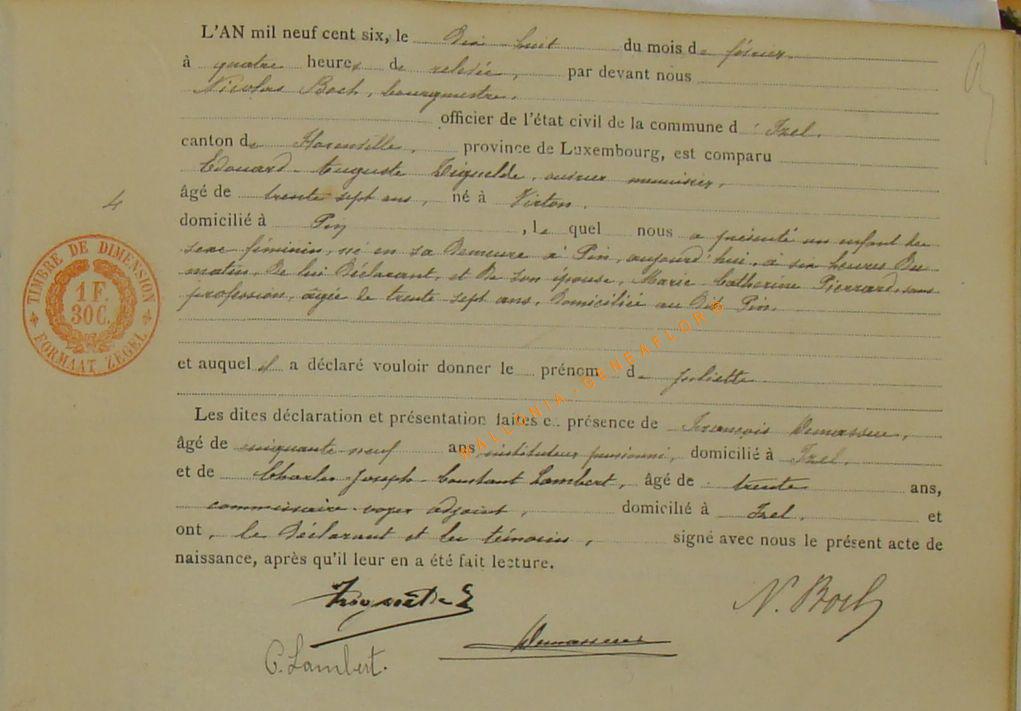 L'AN mil neuf cent six, le dix huit du mois de février
à quatre heures de relevée, par devant nous
Nicolas Boch, bourgmestre,
officier de l'état civil de la commune d'Izel,
canton de Florenville, province de Luxembourg, est comparu
Edouard Auguste, ouvrier menuisier,
âgé de trente sept ans, né à Virton,
domicilié à Pin, le quel nous a présenté un enfant du
sexe féminin, né en sa demeure à Pin, aujourd'hui, à six heures du
matin, de lui déclarant, et de son épouse, Marie Catherine Pierrard, sans
profession, âgée de trente sept ans, domiciliée au dit Pin.
et auquel il a déclaré vouloir donner le prénom de Juliette
Les dites déclaration et présentation faites e. présence de François
âgé de cinquante neuf ans, instituteur pensionné, domicilié à Izel,
et de Charles Joseph Constant Lambert, âgé de trente ans,
commissaire voyer adjoint, domicilié à Izel, et
ont, le déclarant et les témoins, signé avec nous le présent acte de
naissance, après qu'il leur en a été fait lecture.
N. Boch
C. Lambert.
4
TIMBRE DE DIMENSION
1 F.
30 C.
FORMAAT ZEGEL
WALLONIA-GENEAFLOR'S